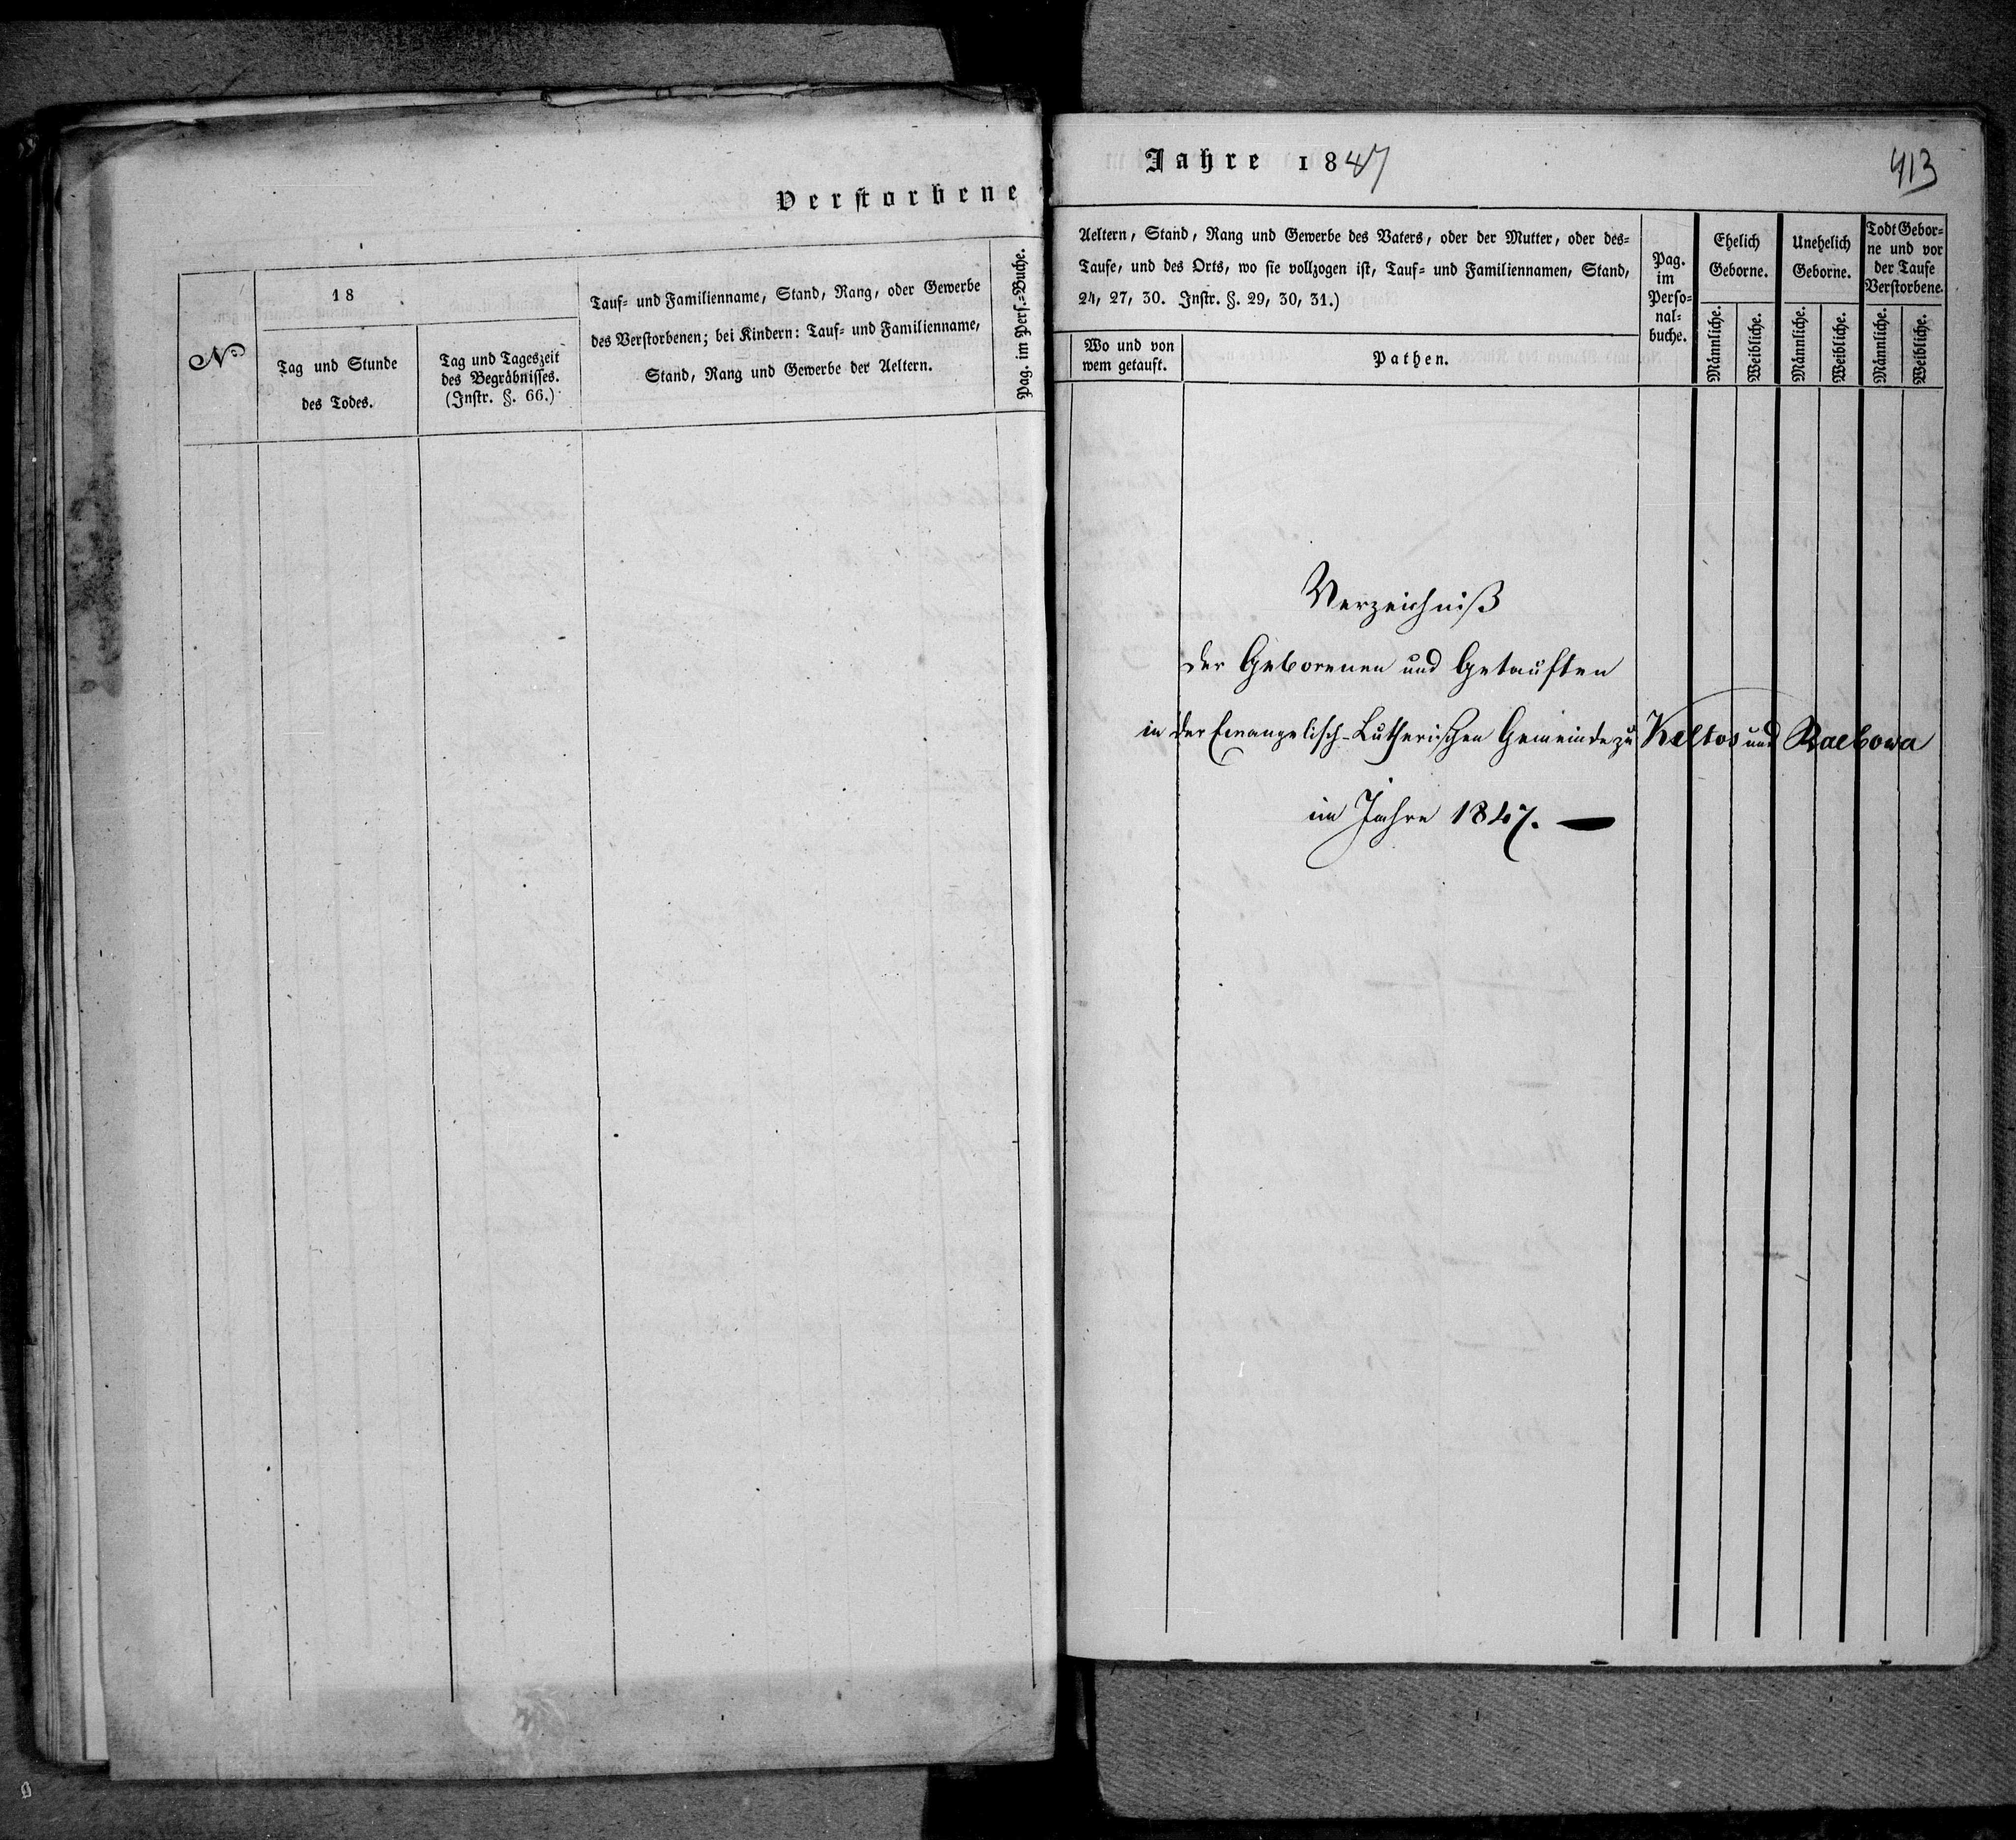 Verstorbene
Pag. im Pers.=Buche.
№
18
Tag und Stunde
des Todes.
Tag und Tageszeit
des Begräbnisses.
(Instr. §. 66.)
Tauf= und Familienname, Stand, Rang, oder Gewerbe
des Verstorbenen; bei Kindern: Tauf= und Familienname,
Stand, Rang und Gewerbe der Aeltern.
Jahre 1847
413
Aeltern, Stand, Rang und Gewerbe des Vaters, oder der Mutter, oder des=
Taufe, und des Orts, wo sie vollzogen ist, Tauf= und Familiennamen, Stand,
24, 27, 30. Instr. §. 29, 30, 31.)
Wo und von
wem getauft.
Pathen.
Pag.
im
Perso=
nal=
buche.
Ehelich
Geborne.
Männliche.
Weibliche.
Unehelich
Geborne.
Männliche.
Weibliche.
Todt Gebor=
ne und vor
der Taufe
Verstorbene.
Männliche.
Weibliche.
Verzeichniß
der Geborenen und Getauften
in der Evangelisch-Lutherischen Gemeinde zu Keltos und Raebowa
im Jahre 1847. —